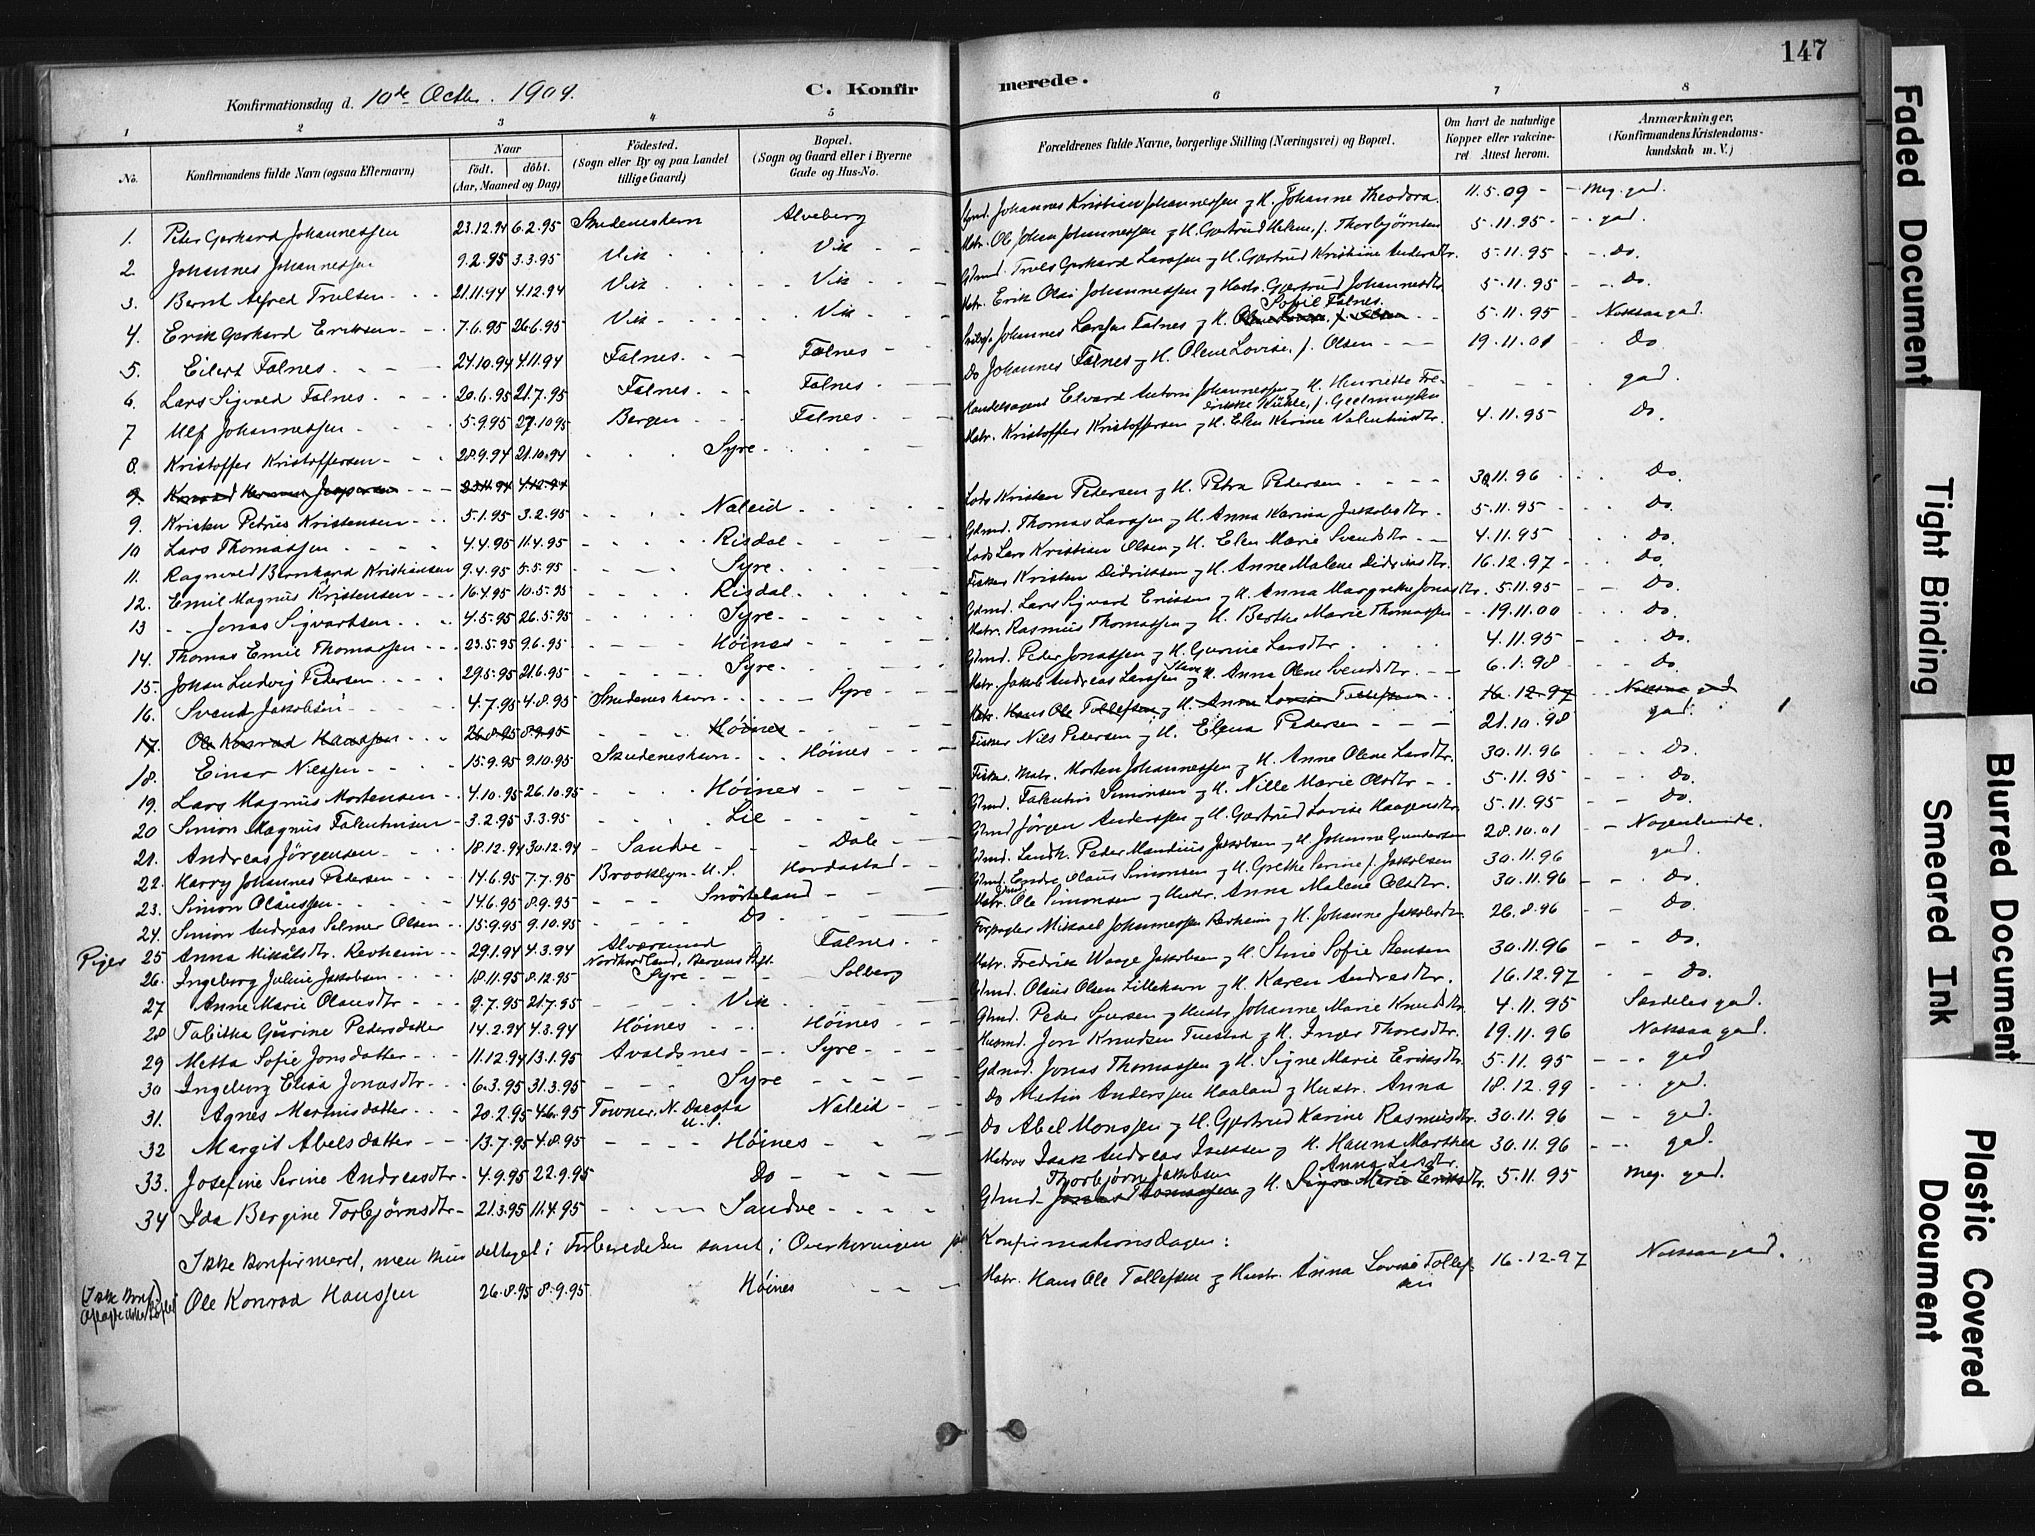 147
Konfirmationsdag d. 10de Octbr. 1909.
C. Konfirmerede.
1 2 3 4 5 6 7 8
No.
Konfirmandens fulde Navn (ogsaa Efternavn)
Naar
födt. döbt.
(Aar, Maaned og Dag)
Födested.
(Sogn eller By og paa Landet
tillige Gaard)
Bopæl.
(Sogn og Gaard eller i Byerne
Gade og Hus-No.
Forældrenes fulde Navne, borgerlige Stilling (Næringsvei) og Bopæl.
Om havt de naturlige
Kopper eller vakcine-
ret Attest herom.
Anmærkninger.
(Konfirmandens Kristendoms-
kundskab m. V.)
1. Peter Gerhard Johannessen 23.12.94 6.2.95 Skudeneshavn Alveberg Gmd. Johannes Kristian Johannessen og H. Johanne Theodora. 11.5.09 - Meg. god.
2. Johannes Johannessen 9.2.95 3.3.95 Vik Vik Matr. Ole Johan Johannessen og H. Gertrud Helene, f. Thorbjørnsen 5.11.95 - god.
3. Bernt Alfred Trulsen 21.11.94 4.12.94 Vik Vik Gdmd. Truls Gerhard Larssen og H. Gertrud Kristine Andersdtr. 5.11.95 - Do.
4. Erik Gerhard Eriksen 7.6.95 26.6.95 Vik Vik Matr. Erik Olai Johannessen og Hustr. Gjertrud Johannesdtr 5.11.95 - Do
5. Eilert Falnes 24.10.94 4.11.94 Falnes Falnes Johannes Larssen Falnes og H. Sofie Falnes. 5.11.95 - Noksaa god.
6. Lars Sigvald Falnes 20.6.95 21.7.95 Falnes Falnes Do Johannes Falnes og H. Olene Lovise, f. Olsen 19.11.01 Do
7 Ulf Johannessen 5.9.95 27.10.95 Bergen Falnes Handelsagent Edvard Anton Johannessen og H. Henriette Fre-
drikke Kühle, f. Geelmuyden god.
8. Kristoffer Kristoffersen 28.9.94 21.10.94 Syre Matr. Kristoffer Kristoffersen og H. Elen Karine Valentinsdtr. 4.11.95 Do.
9. Konrad Herman Jespersen 23.11.94 4.12.94
9. Kristen Petrus Kristensen 5.1.95 3.2.95 Naleid Lods Kristen Pedersen og H. Petra Pedersen 30.11.96 Do
10 Lars Thomassen 4.4.95 11.4.95 Risdal Gdmd. Thomas Larssen og H. Anna Karina Jakobsdtr. 5.11.95 Do.
11. Ragnvald Bernhard Kristiansen 9.4.95 5.5.95 Syre Lods Lars Kristian Olsen og H. Elen Marie Svendsdtr. 4.11.95 Do.
12. Emil Magnus Kristensen 16.4.95 10.5.95 Risdal Fisker Kristen Didriksen og H. Anne Malene Didriksdtr. 16.12.97 Do
13 Jonas Sigvartsen 4.5.95 26.5.95 Syre Gdmd. Lars Sigvard Eriksen og H. Anna Margrethe Jonasdtr. 5.11.95 Do
14. Thomas Emil Thomassen 23.5.95 9.6.95 Höines Matr. Rasmus Thomassen og H. Berthe Marie Thomassen 19.11.00 Do.
15. Johan Ludvig Pedersen 29.5.95 21.6.95 Syre Gdmd. Peder Jonassen og H. Gurine Larsdtr. 4.11.95 Do.
16. Svend Jakobsen 4.7.95 4.8.95 Skudeneshavn Syre Matr. Jakob Andreas Larssen og H. Anna Olene Svendsdtr. 6.1.98 Do.
17. Ole Konrad Hanssen 26.8.95 8.9.95 Höines Matr. Hans Ole Tollefsen og H. Anna Lovise Tollefsen 16.12.97 Noksaa god
18. Einar Nilssen 15.9.95 9.10.95 Skudeneshavn Höines Fisker Nils Pedersen og H. Elena Pedersen 21.10.98 god.
19. Lars Magnus Mortensen 4.10.95 26.10.95 Höines Fisker Matr. Morten Johannessen og H. Anne Olene Larsdtr. 30.11.96 Do.
20 Simon Magnus Falentinsen 3.2.95 3.3.95 Lie Gdmd. Falentin Simonsen og H. Nille Marie Olsdtr 5.11.95 Do.
21. Andreas Jörgensen 18.12.94 30.12.94 Sandve Dale Gdmd Jörgen Anderssen og H. Gertrud Lovise Haagensdtr. 5.11.95 Do.
22. Harry Johannes Pedersen 14.6.95 7.7.95 Brooklyn U.S. Hordastad Gdmd. Landh. Peder Mandius Jakobsen og H. Johanne Gundersen 28.10.01 Nogenlunde.
23. Simon Olaussen 14.6.95 8.9.95 Snörteland Gdmd. Endre Olaus Simonsen og H. Grethe Serine f. Jakobsen 30.11.96 god.
24. Simon Andreas Selmer Olsen 15.9.95 9.10.95 Do Matr. Gdmd Ole Simonsen og Hustr. Anna Malene Olsdtr. 30.11.96 Do.
Piger 25 Anna Mikalsdtr. Revheim 29.1.94 4.3.94 Alversund
Nordhordland, Bergens Stift. Falnes Forpagter Mikael Johannessen Revheim og H. Johanne Jakobsdtr. 26.8.96 Do
26. Ingeborg Juline Jakobsen 18.11.95 8.12.95 Syre Solberg Matr. Fredrik Waage Jakobsen og H. Stine Sofie Stensen 30.11.96 Do.
27 Anne Marie Olausdtr 9.7.95 21.7.95 Vik Gdmd. Olaus Olsen Lillehavn og H. Karen Andreasdtr. 16.12.97 Do.
28 Tabitha Gurine Pedersdatter 14.2.94 4.3.94 Höines Höines Gdmd. Peder Sjursen og Hustr. Johanne Marie Knudsdtr. 4.11.95 Særdeles god.
29 Metta Sofie Jonsdatter 11.12.94 13.1.95 Avaldsnes Syre Husmd. Jon Knudsen Tuestad og H. Inger Thoresdtr. 19.11.96 Noksaa god.
30 Ingeborg Elisa Jonasdtr. 6.3.95 31.3.95 Syre Gdmd. Jonas Thomassen og H. Signe Marie Eriksdtr. 5.11.95 god
31. Agnes Martinisdatter 20.2.95 4.6.95 Towner, N. Dacota
U.S. Naleid Do Martin Anderssen Haaland og Hustr. Anna 18.12.99 god.
32 Margit Abelsdatter 13.7.95 4.8.95 Höines Do Abel Monssen og H. Gjertrud Karine Rasmusdtr. 30.11.96 god.
33. Josefine Serine Andreasdtr. 4.9.95 22.9.95 Do Matros Isak Andreas Isaksen og H. Hanna Marthea 30.11.96 god.
34 Ida Bergine Torbjørnsdtr 21.3.95 11.4.95 Sandve Gdmd. Thorbjørn Jakobsen Jonas Thomassen og H. Anna Larsdtr. Signe Marie Eriksdtr. 5.11.95 Meg. god.
Ikke konfirmeret, men kun deltaget i Forberedelsen samt i Overhøringen paa Konfirmationsdagen:
(Ikke konf.)
Aflagde ikke Løftet Ole Konrad Hanssen 26.8.95 8.9.95 Höines Matr. Hans Ole Tollefsen og Hustr. Anna Lovise Tollef-
sen 16.12.97 Noksaa god.
Faded Document
Tight Binding
Blurred Document
Smeared Ink
Plastic Covered
Document